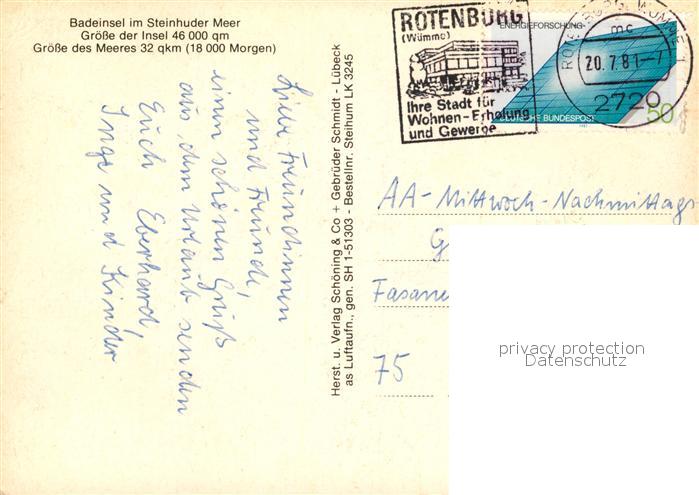 Badeinsel im Steinhuder Meer
Größe der Insel 46 000 qm
Größe des Meeres 32 qkm (18 000 Morgen)
Liebe Freundinnen
und Freunde,
einen schönen Gruß
aus dem Urlaub senden
Euch Eberhard,
Inge und Kinder
Herst. u. Verlag Schöning & Co + Gebrüder Schmidt - Lübeck
as Luftaufn., gen. SH 1-51303 - Bestellnr. Steihum LK 3245
ROTENBURG
(Wümme)
Ihre Stadt für
Wohnen-Erholung
und Gewerbe
ENERGIEFORSCHUNG
DEUTSCHE BUNDESPOST
50
ROTENBURG, WÜMME 1
mc
20.7.81-7
2720
AA-Mittwoch-Nachmittags
G
Fasane
75
privacy protection
Datenschutz